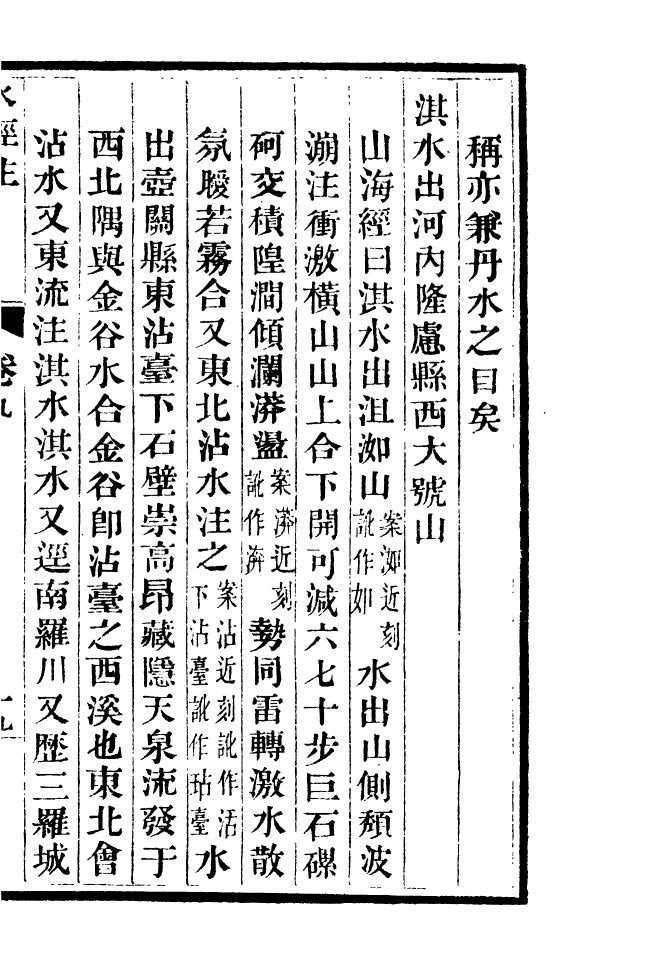 稱亦兼丹水之目矣
淇水出河內隆慮縣西大號山
山海經曰淇水出沮洳山案洳近刻訛作如水出山側頹波
漰注衝激橫山山上合下開可減六七十步巨石磥
砢交積隍澗傾瀾漭盪案漭近刻訛作渀勢同雷轉激水散
氛曖若霧合又東北沾水注之案沾近刻訛作活下沾臺訛作玷臺水
出壺關縣東沾臺下石壁崇高昂藏隱天泉流發于
西北隅與金谷水合金谷卽沾臺之西溪也東北會
沾水又東流注淇水淇水又逕南羅川又歷三羅城
水經注
卷九